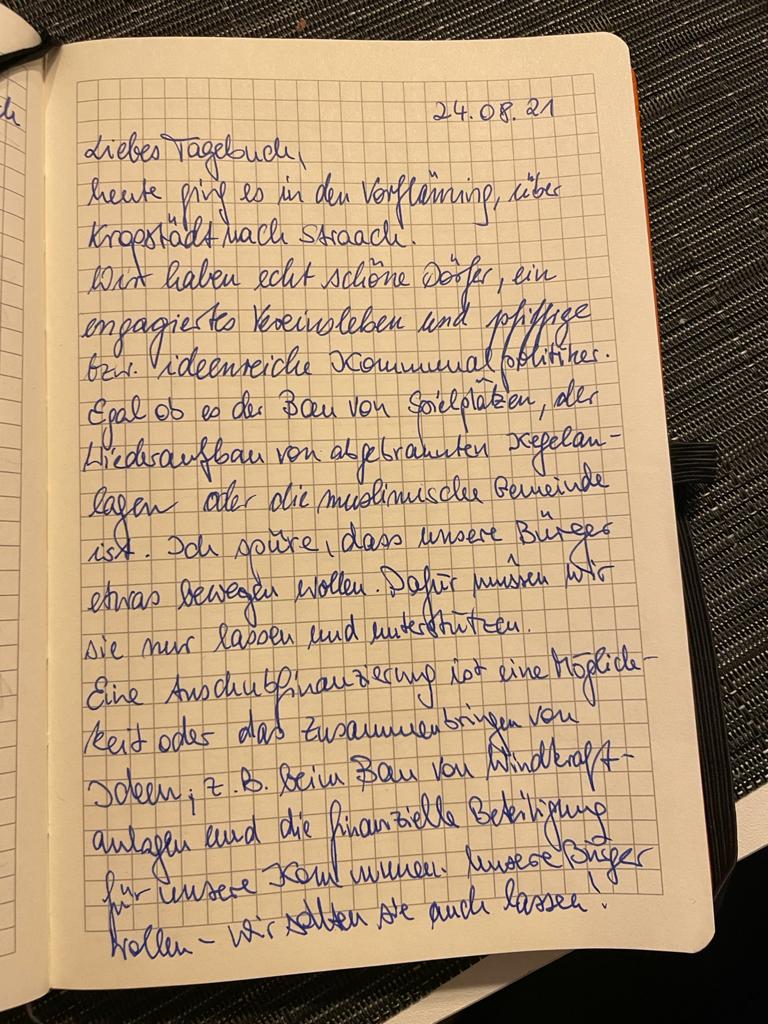 24.08.21
Liebes Tagebuch,
heute ging es in den Vorfläming, über
Kropstädt nach Straach.
Wir haben echt schöne Dörfer, ein
engagiertes Vereinsleben und pfiffige
bzw. ideenreiche Kommunalpolitiker.
Egal ob es der Bau von Spielplätzen, der
Wiederaufbau von abgebrannten Kegelan-
lagen oder die muslimische Gemeinde
ist. Ich spüre, dass unsere Bürger
etwas bewegen wollen. Dafür müssen wir
sie nur lassen und unterstützen.
Eine Anschubfinanzierung ist eine Möglich-
keit oder das Zusammenbringen von
Ideen, z.B. beim Bau von Windkraft-
anlagen und die finanzielle Beteiligung
für unsere Kommunen. Unsere Bürger
wollen - wir sollten sie auch lassen!